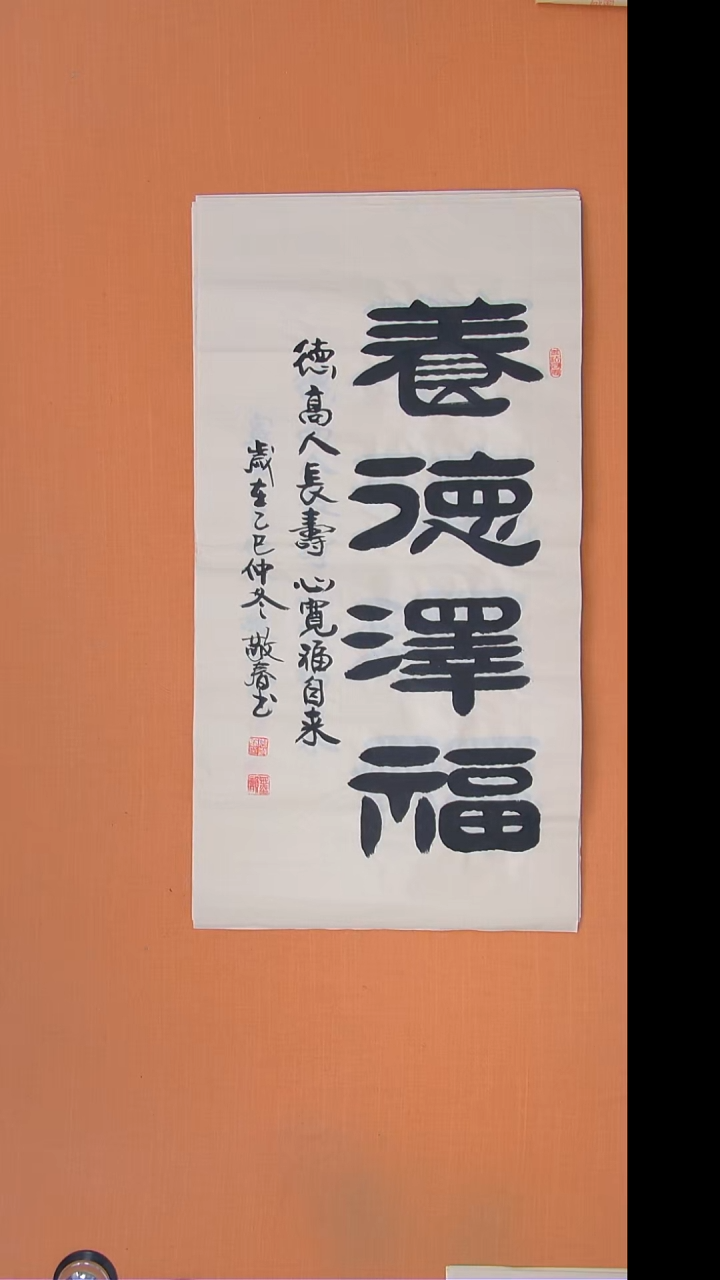 養德澤福
德高人長壽心寬福自来
歲在乙巳仲冬敬春书